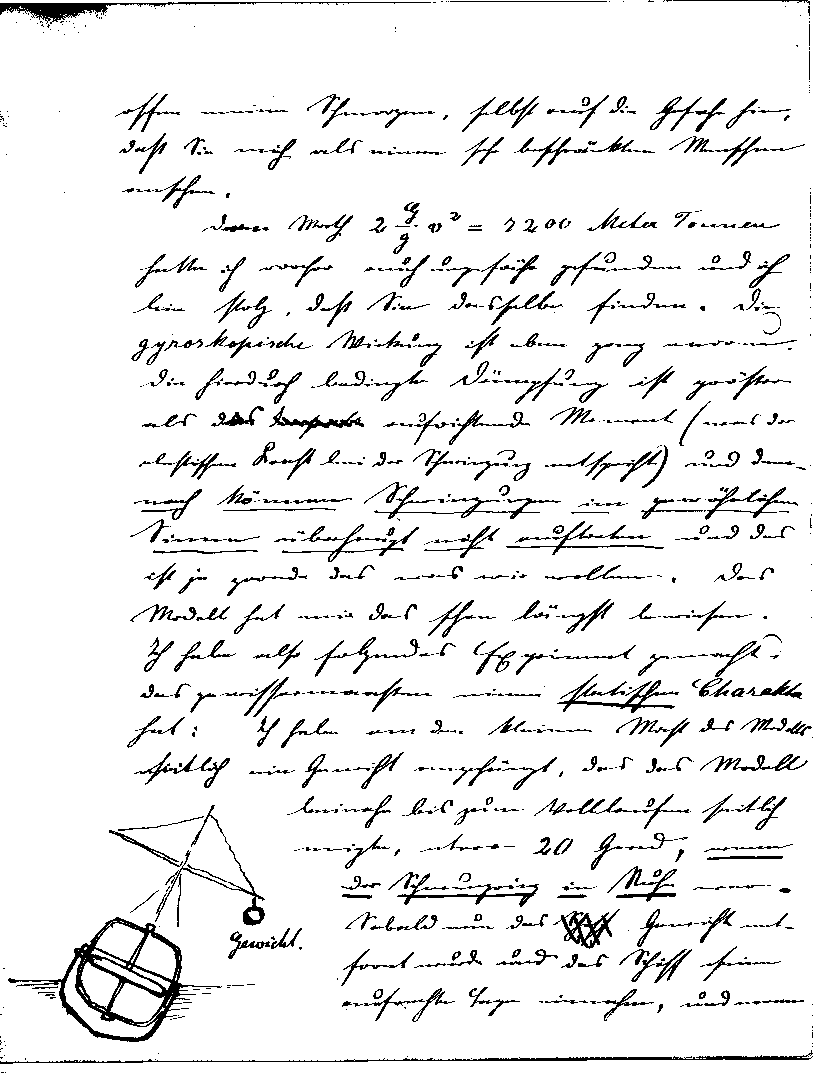 offen meine Schmerzen, selbst auf die Gefahr hin,
daß Sie mich als einen sehr beschränkten Menschen
ansehen.
Den Werth 2 G/g v² = 2200 Meter Tonnen
hatte ich vorher auch ungefähr gefunden und ich
bin stolz, daß Sie dasselbe finden. Die
gyroskopische Wirkung ist eben ganz enorm.
Die hierdurch bedingte Dämpfung ist größer
als das aufrichtende Moment (was der
elastischen Kraft bei der Schwingung entspricht) und dem-
nach können Schwingungen im gewöhnlichen
Sinne überhaupt nicht auftreten und das
ist ja gerade das was wir wollen. Das
Modell hat mir das schon längst bewiesen.
Ich habe also folgendes Experiment gemacht,
das gewissermaassen einen statischen Charakter
hat: Ich habe an den kleinen Mast des Modells
seitlich ein Gewicht angehängt, das das Modell
beinahe bis zum Vollaufen seitlich
neigte, etwa 20 Grad, wenn
der Schwungring in Ruhe war.
Sobald nun das Gewicht ent-
fernt wurde und das Schiff seine
aufrechte Lage einnahm, und wenn
Gewicht.